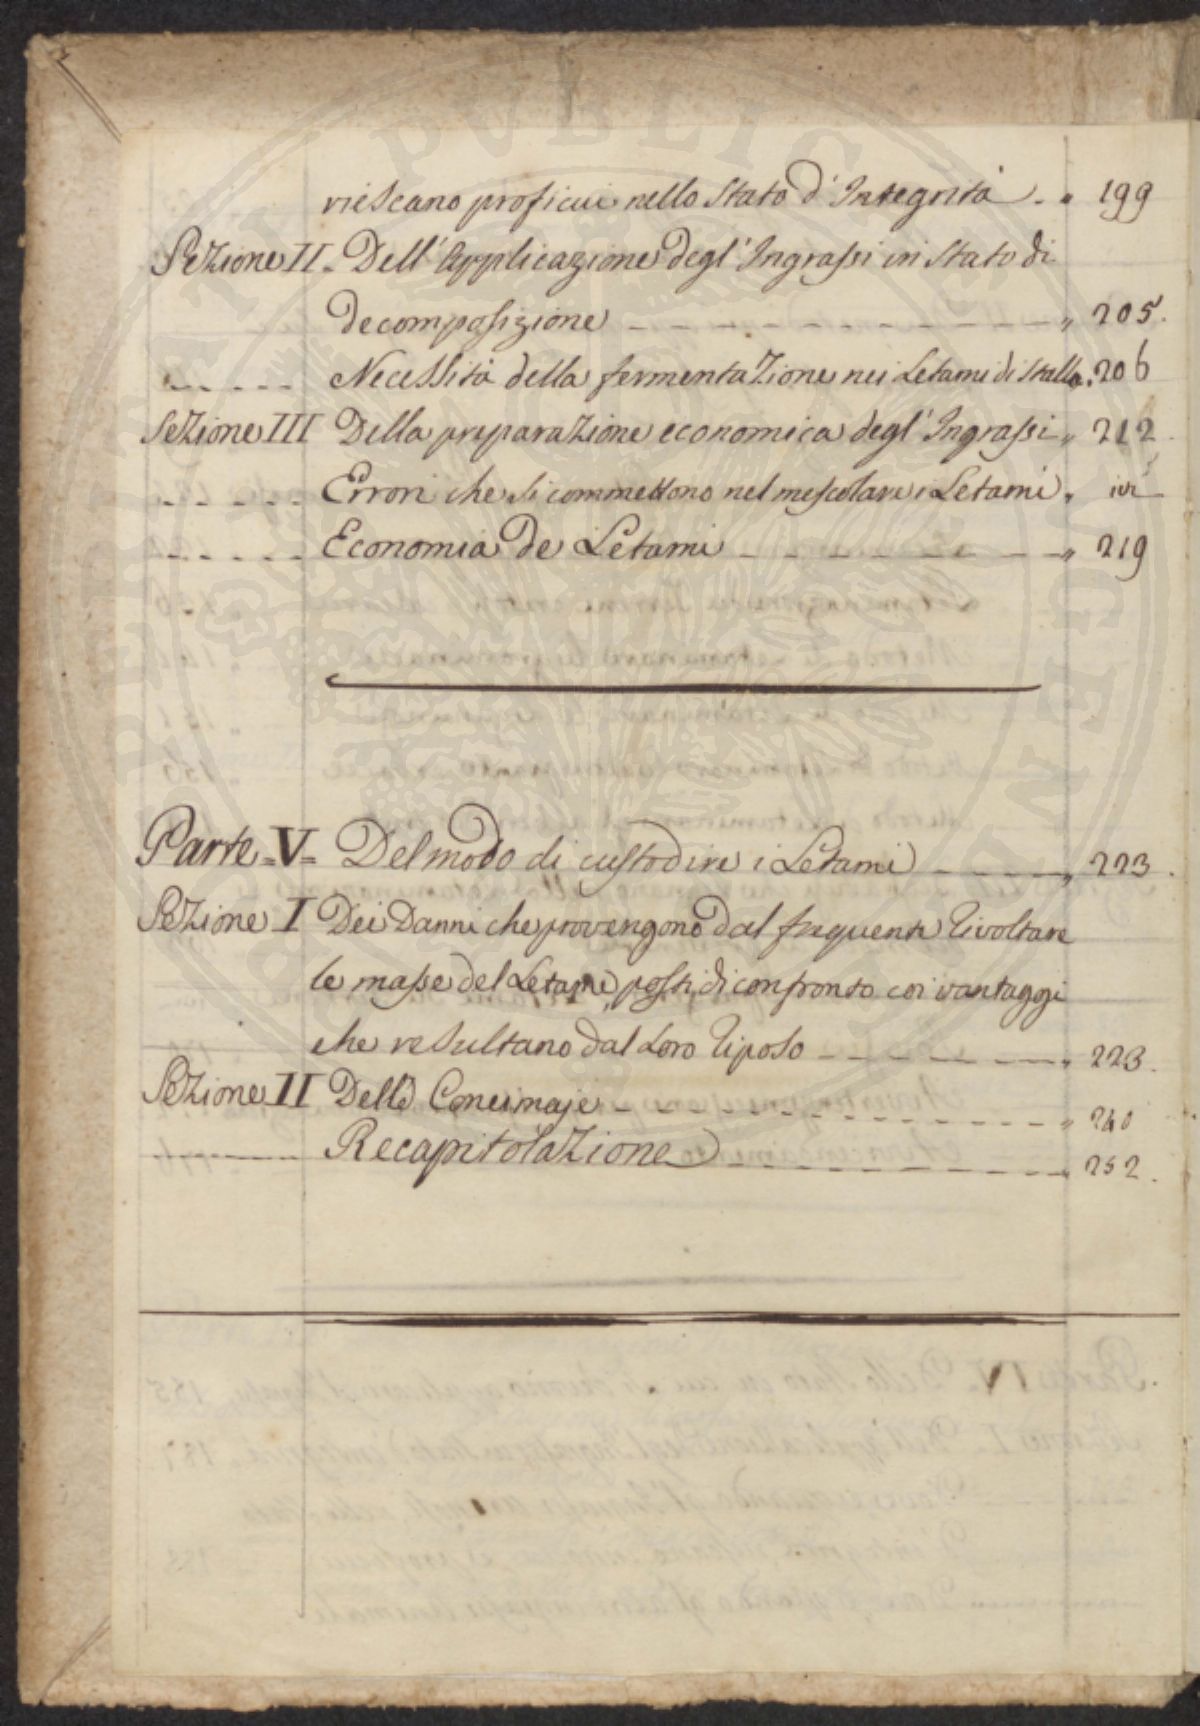 riescano proficui nello Stato d'Integrità - „ 199
Sezione II. Dell'Applicazione degl'Ingrassi in Stato di
decomposizione „ 205.
Necessità della fermentazione nei Letami di Stalla „ 206
Sezione III Della preparazione economica degl'Ingrassi „ 212.
Errori che si commettono nel mescolare i Letami „ ivi
Economia de Letami „ 219
Parte = V = Del modo di custodire i Letami „ 223.
Sezione I Dei Danni che provengono dal frequente rivoltare
le masse del Letame, posti di confronto coi vantaggi
che resultano dal Loro riposo „ 223.
Sezione II Delle Concimaje „ 240
Recapitolazione „ 252.